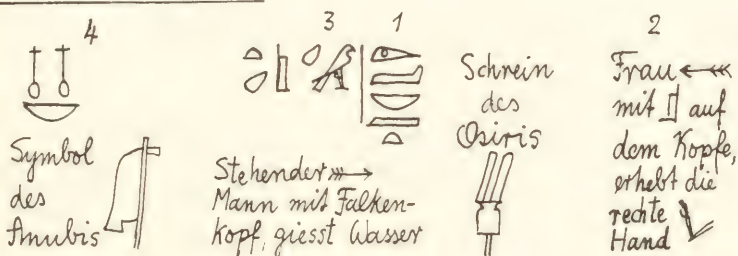 4
3
1
2
Symbol
des
Anubis
Stehender
Mann mit Falken-
kopf, giesst Wasser
Schrein
des
Osiris
Frau
mit auf
dem Kopfe,
erhebt die
rechte
Hand